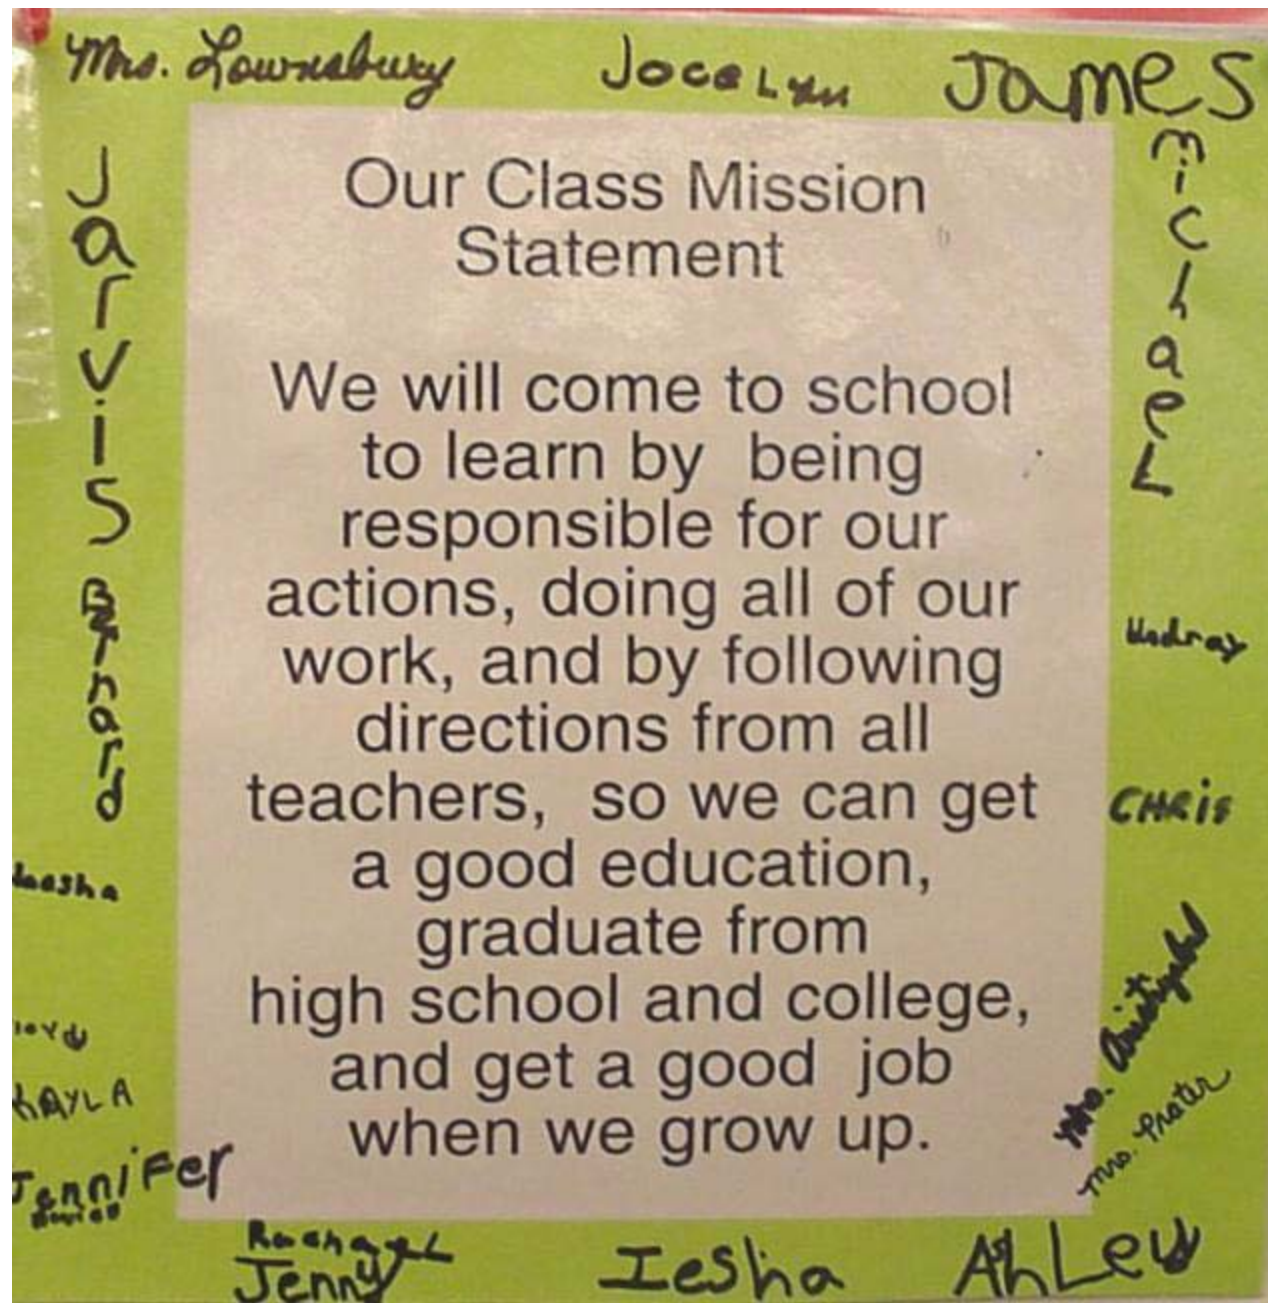 Mrs. Lownsbury
Jocelyn
James
Jarvis
Michael
Our Class Mission
Statement
We will come to school
to learn by being
responsible for our
actions, doing all of our
work, and by following
directions from all
teachers, so we can get
a good education,
graduate from
high school and college,
and get a good job
when we grow up.
Undray
CHRIS
Mrs.
Mrs. Prater
KAYLA
Jennifer
Rachael
Jenny
Iesha
AshLey